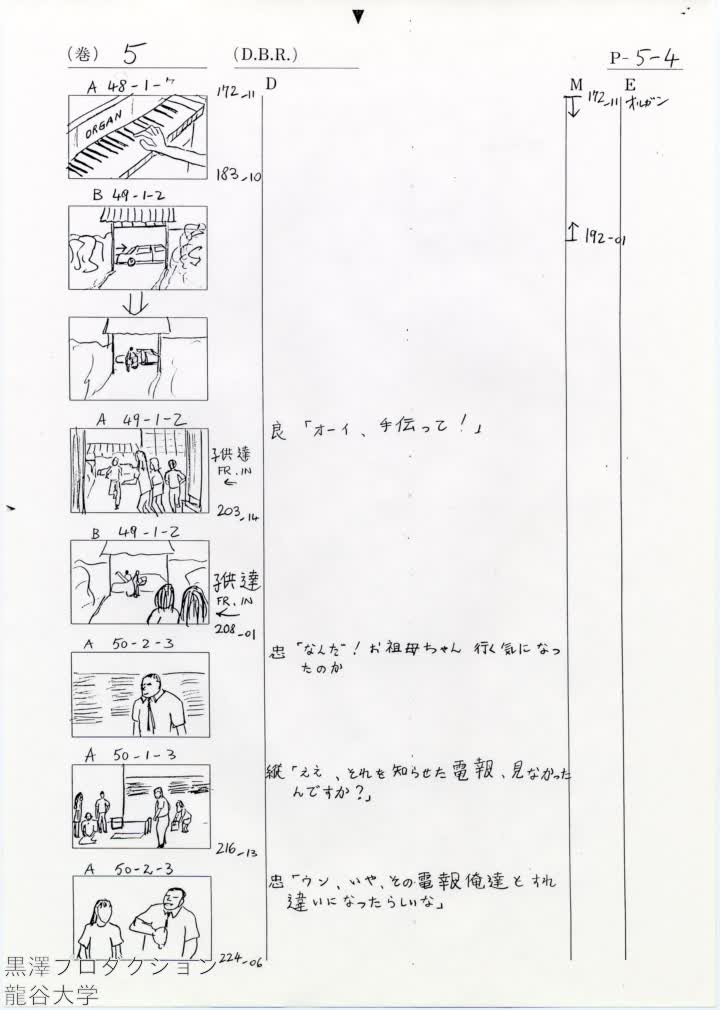 (巻) 5 (D.B.R.) P-5-4
D M E
A 48-1-7 172-11
ORGAN
172-11 オルガン
183-10
B 49-1-2
192-01
A 49-1-2
良「オーイ、手伝って!」
子供達
FR.IN
203-14
B 49-1-2
子供達
FR.IN
208-01
A 50-2-3
忠「なんだ!お祖母ちゃん 行く気になっ
たのか
A 50-1-3
縦「ええ、それを知らせた電報、見なかった
んですか?」
216-13
A 50-2-3
忠「ウン、いや、その電報俺達とすれ
違いになったらしいな」
224-06
黒澤プロダクション
龍谷大学